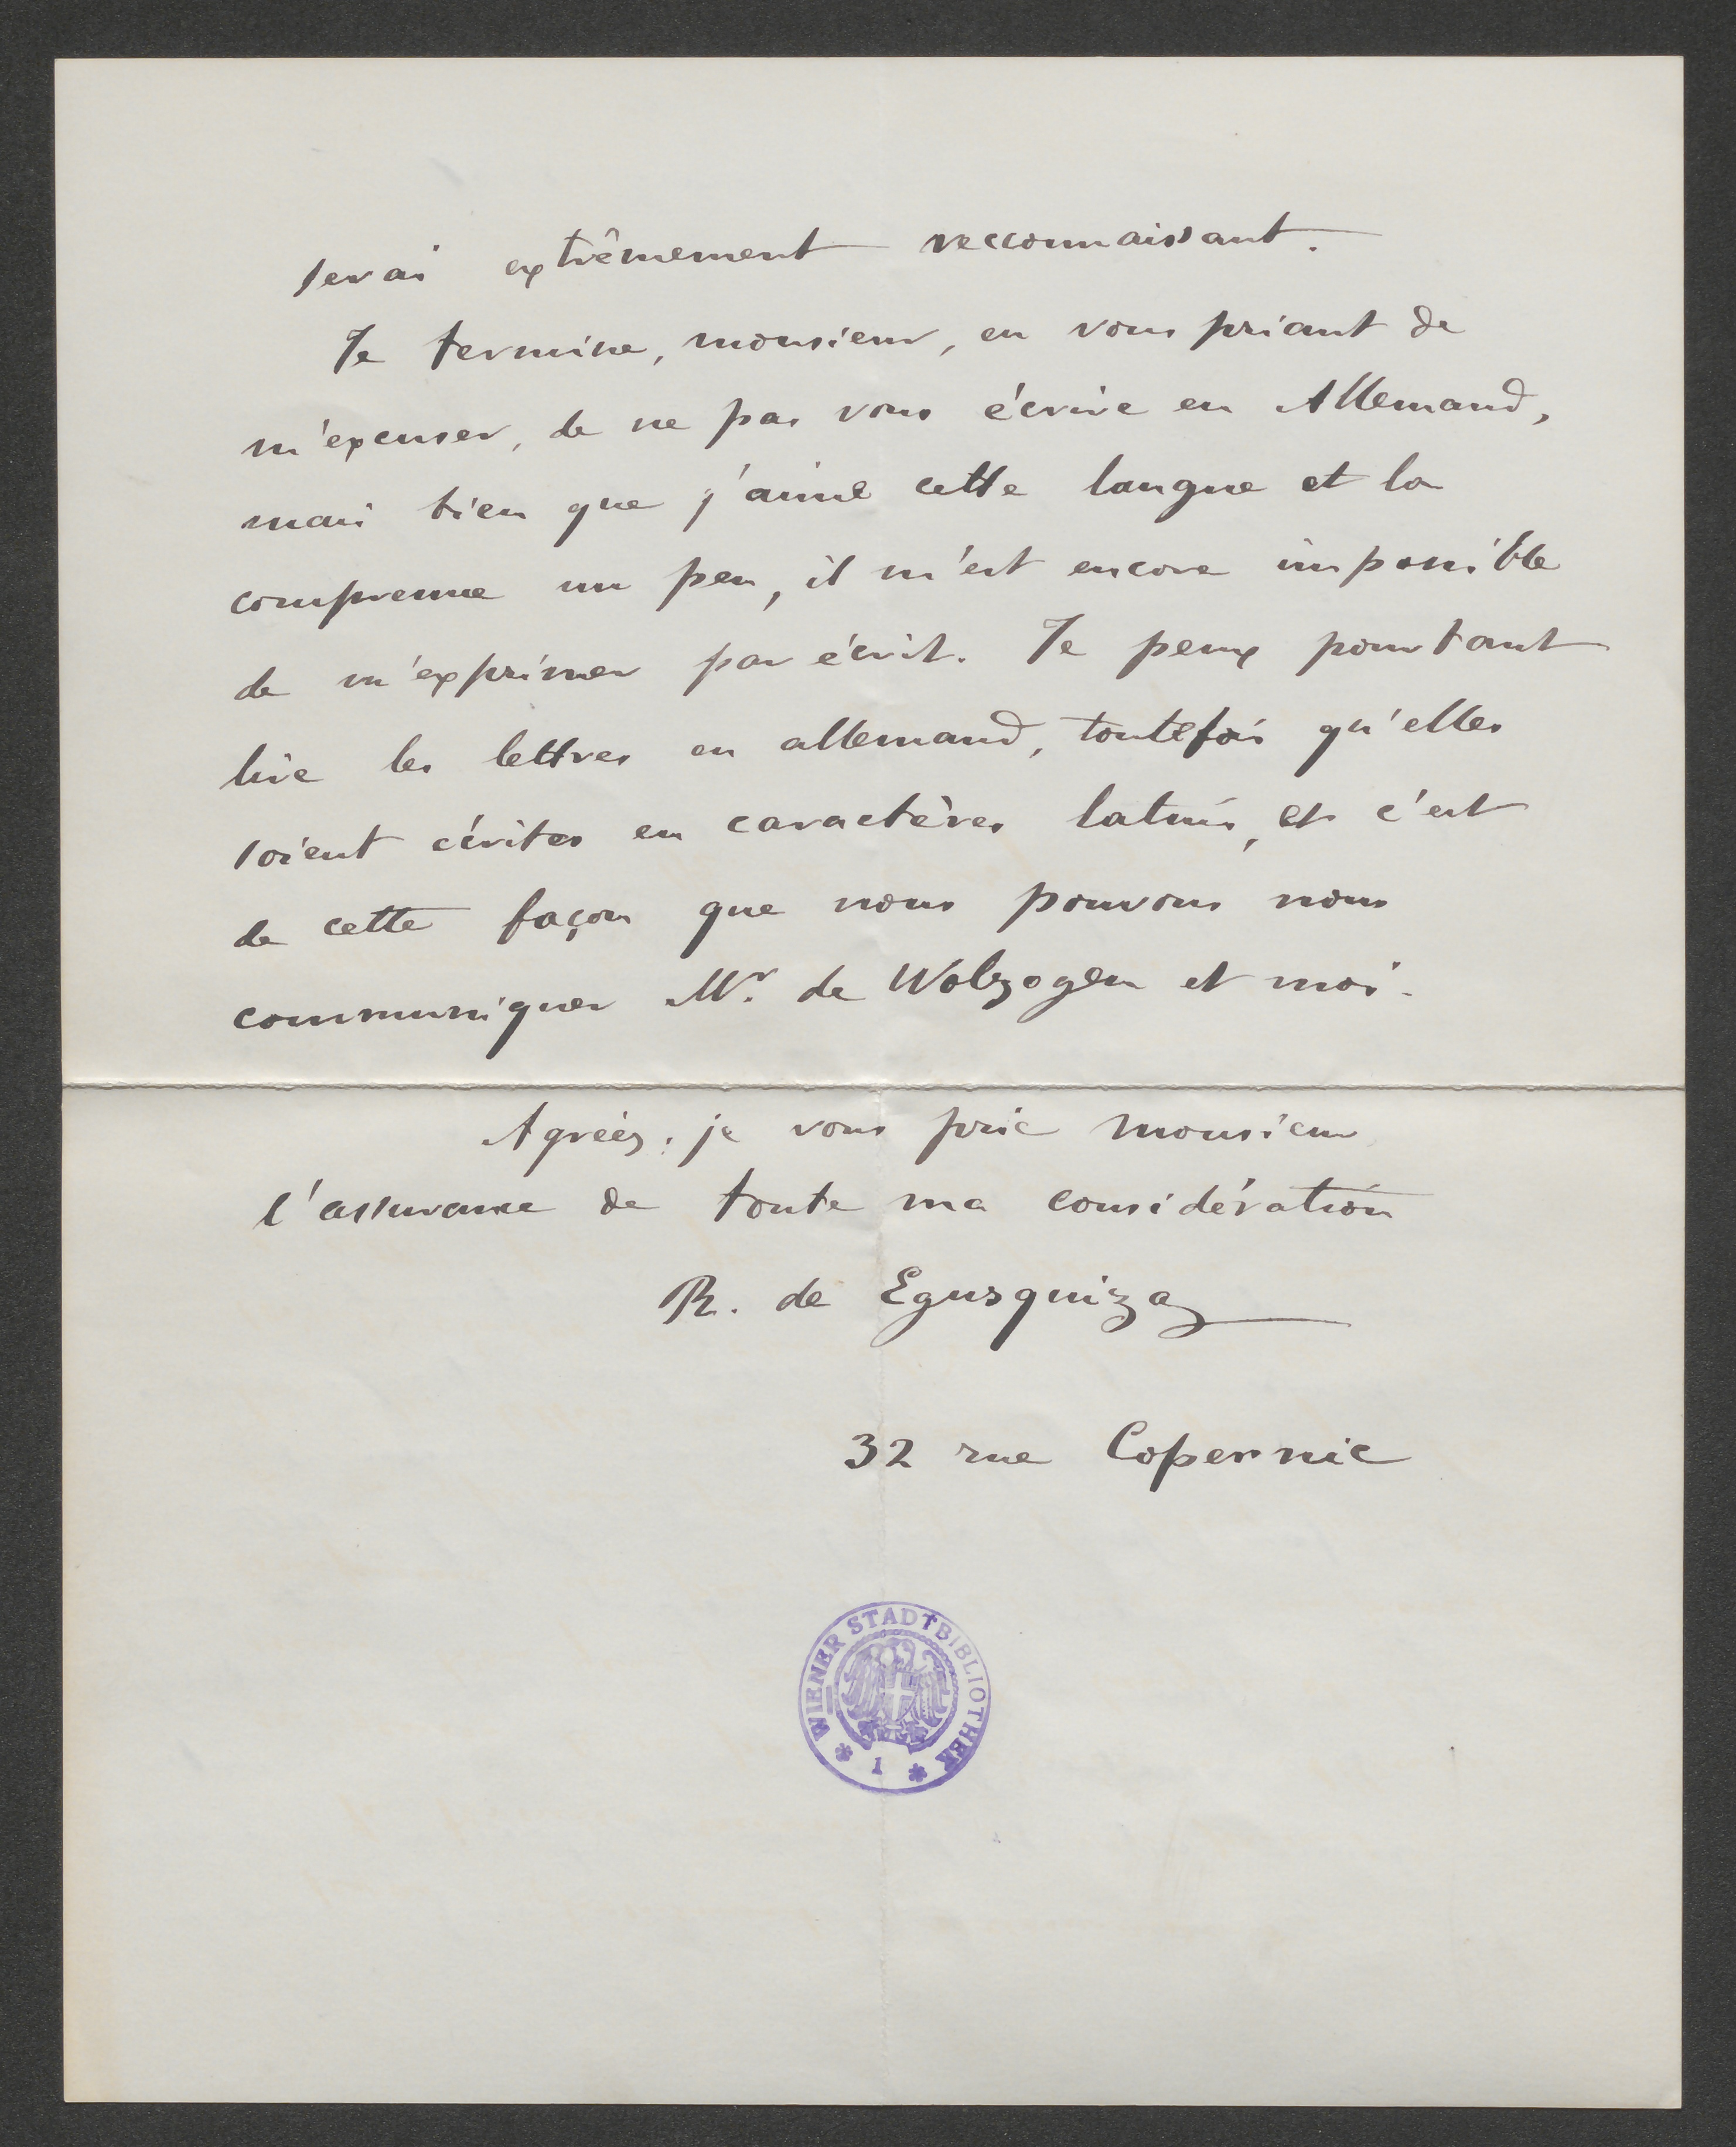 serai extrêmement reconnaissant.
Je termine, monsieur, en vous priant de
m'excuser, de ne pas vous écrire en Allemand,
mais bien que j'aime cette langue et la
comprenne un peu, il m'est encore impossible
de m'exprimer par écrit. Je peux pourtant
lire les lettres en allemand, toutefois qu'elles
soient écrites en caractères latins, et c'est
de cette façon que nous pouvons nous
communiquer Mr. de Wolzogen et moi.
Agréez, je vous prie monsieur
l'assurance de toute ma considération
R. de Egusquiza
32 rue Copernic
WIENER STADTBIBLIOTHEK
1